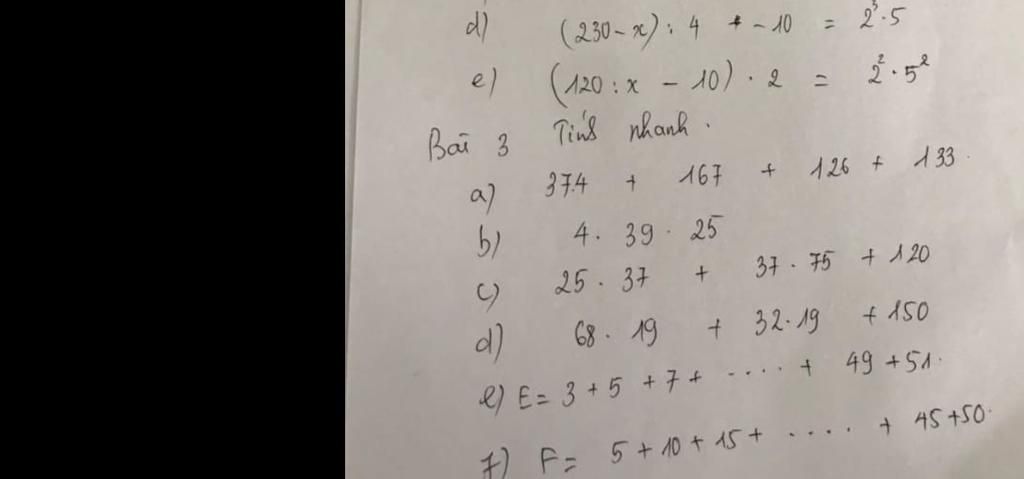 d) (230 - x) : 4 - 10 = 2³ · 5
e) (120 : x - 10) · 2 = 2² · 5²
Bài 3 Tính nhanh.
a) 374 + 167 + 126 + 133.
b) 4 · 39 · 25
c) 25 · 37 + 37 · 75 + 120
d) 68 · 19 + 32 · 19 + 150
e) E = 3 + 5 + 7 + ..... + 49 + 51.
f) F = 5 + 10 + 15 + ..... + 45 + 50.